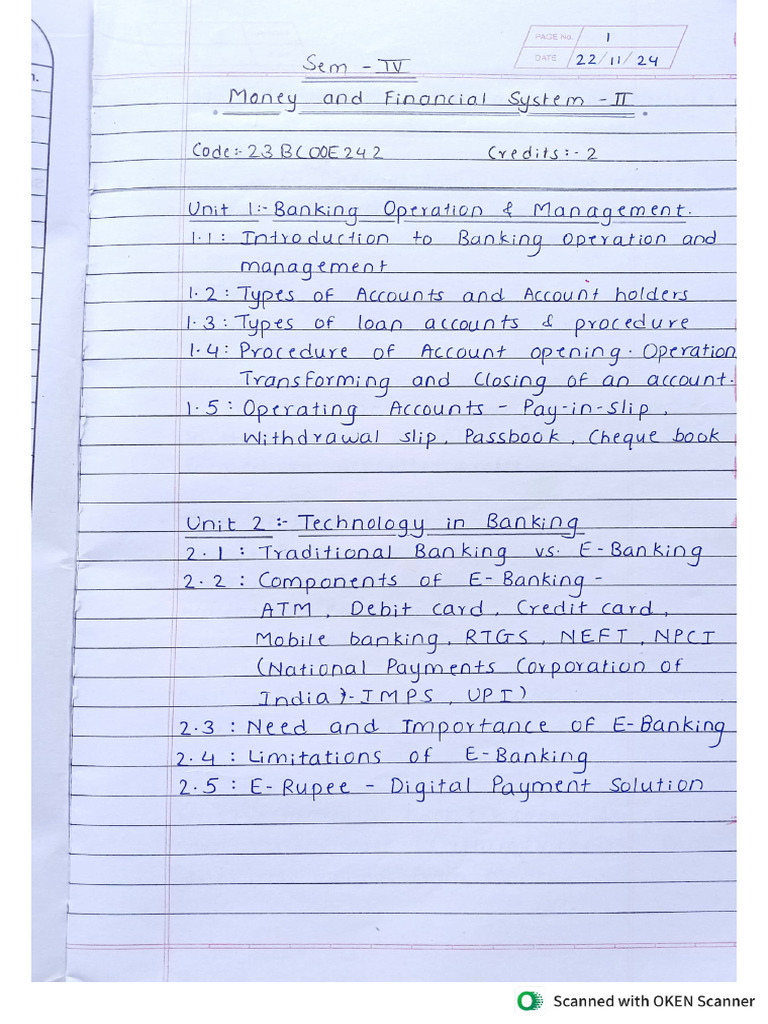 PAGE No. 1
DATE 22/11/24
n.
Sem - IV
Money and Financial System - II
Code:- 23BCOOE242 Credits:- 2
Unit 1:- Banking Operation & Management.
1.1: Introduction to Banking Operation and
management
1.2: Types of Accounts and Account holders
1.3: Types of loan accounts & procedure
1.4: Procedure of Account opening. Operation
Transforming and Closing of an account.
1.5: Operating Accounts - Pay-in-slip,
Withdrawal slip, Passbook, Cheque book
Unit 2:- Technology in Banking
2.1: Traditional Banking vs. E-Banking
2.2: Components of E-Banking -
ATM, Debit card, Credit card,
Mobile banking, RTGS, NEFT, NPCI
(National Payments Corporation of
India)-IMPS, UPI)
2.3: Need and Importance of E-Banking
2.4: Limitations of E-Banking
2.5: E-Rupee - Digital Payment Solution
Scanned with OKEN Scanner